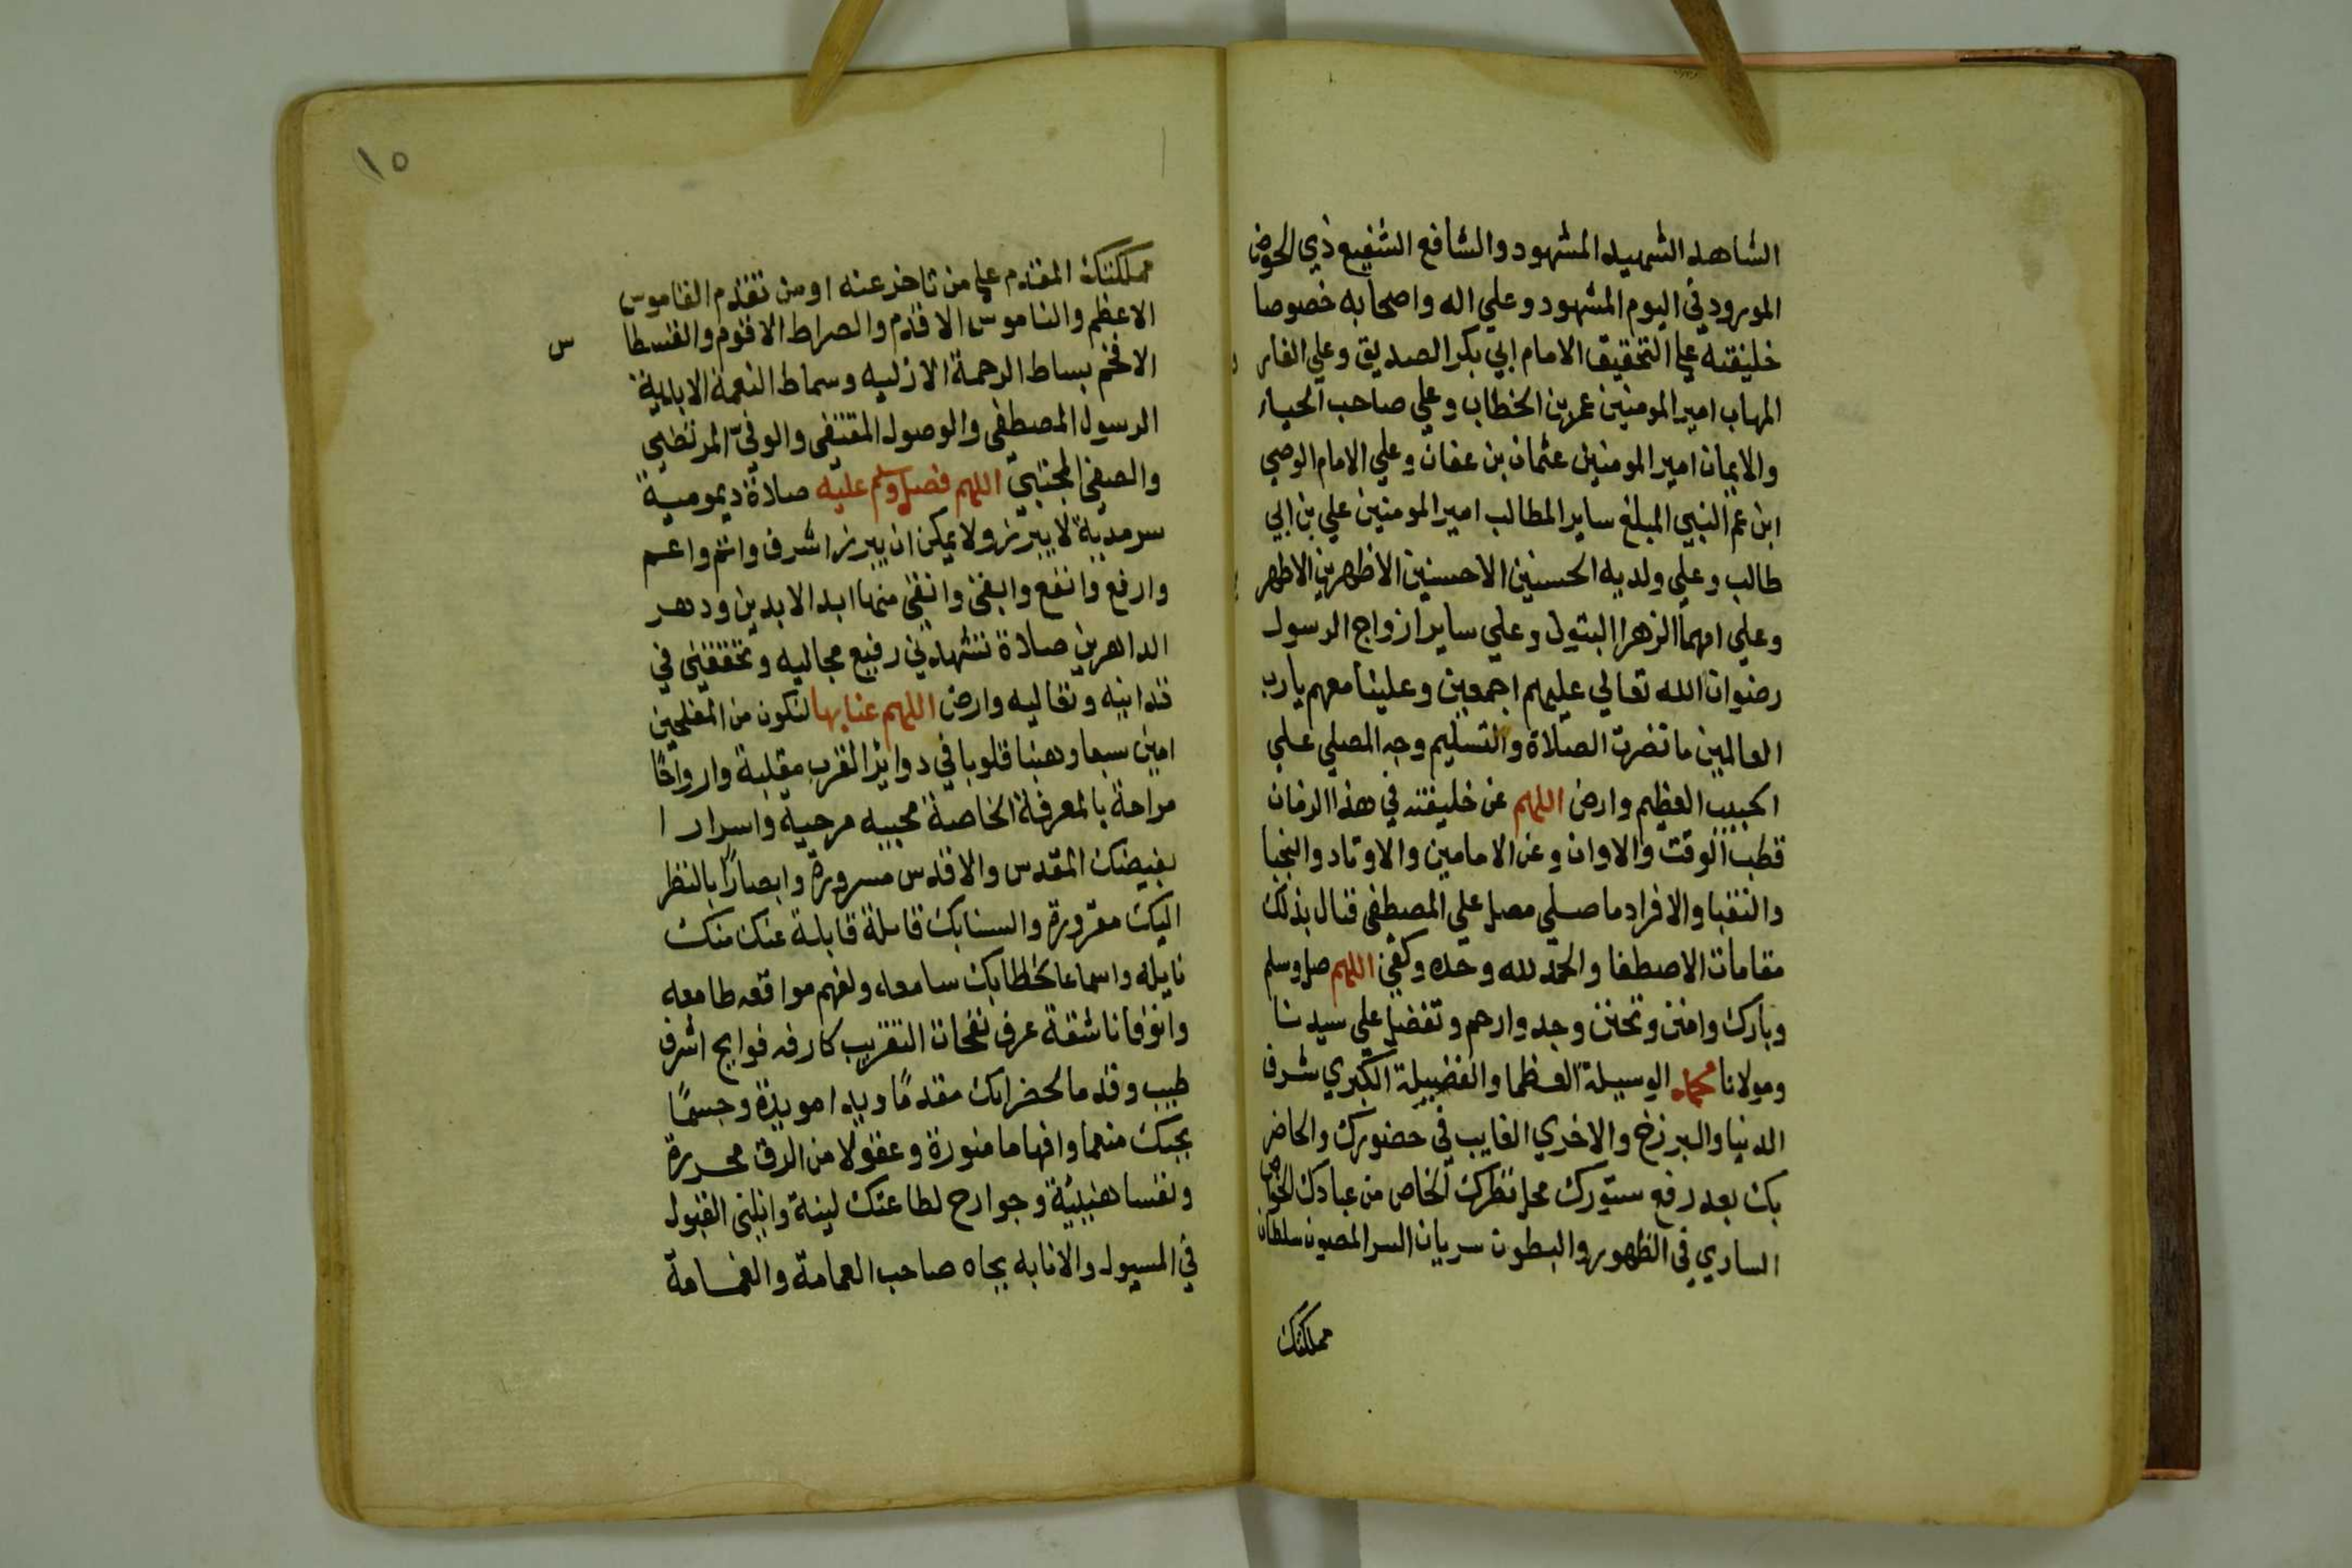 الشاهد الشهيد المشهود والشافع الشفيع ذي الحوض
المورود في اليوم المشهود وعلي اله واصحابه خصوصا
خليفته علي التحقيق الامام ابي بكر الصديق وعلي الفار
المهاب امير المومنين عمر بن الخطاب وعلي صاحب الحيا
والايمان امير المومنين عثمان بن عفان وعلي الامام الوصي
ابن عم النبي المبلغ ساير المطالب امير المومنين علي بن ابي
طالب وعلي ولديه الحسنين الاحسنين الاظهرين الاطهر
وعلي امهما الزهرا البتول وعلي ساير ازواج الرسول
رضوان الله تعالي عليهم اجمعين وعلينا معهم يا رب
العالمين ما نضرت الصلاة والتسليم وجه المصلي علي
الحبيب العظيم وارض اللهم عن خليفته في هذا الزمان
قطب الوقت والاوان وعن الامامين والاوتاد والنجبا
والنقبا والافراد ما صلي مصل علي المصطفي فنال بذلك
مقامات الاصطفا والحمد لله وحده وكفي اللهم صل وسلم
وبارك وامنن وتحنن وجد وارحم وتفضل علي سيدنا
ومولانا محمد الوسيلة العظما والفضيلة الكبري شرف
الدنيا والبرزخ والاخري الغايب في حضورك والحاضر
بك بعد رفع ستورك محل نظرك الخاص من عبادك الخواص
الساري في الظهور والبطون سريان السر المصون سلطان
مملكتك
١٥
مملكتك المقدم علي من تاخر عنه او من تقدم القاموس
الاعظم والناموس الاقدم والصراط الاقوم والقسطا س
الافخم بساط الرحمة الازليه وسماط النعمة الابدية
الرسول المصطفي والوصول المقتفي والوفي المرتضي
والصفي المجتبي اللهم فصل وسلم عليه صلاة ديمومية
سرمدية لا يبرز ولا يمكن ان يبرز اشرف واتم واعم
وارفع وانفع وابقي وانقي منها ابد الابدين ودهر
الداهرين صلاة تشهدني رفيع مجاليه وتحققني في
تدانيه وتعاليه وارض اللهم عنا بها لنكون من المفلحين
امين سبعا وهبنا قلوبا في دواير القرب مقلبة وارواحًا
مراحة بالمعرفة الخاصة محببه مرحية واسرارا
بفيضك المقدس والاقدس مسرورة وابصارًا بالنظر
اليك مقرورة والسنا بك قايلة قابلة عنك منك
نايله واسماعا لخطابك سامعه ولفهم مواقعه طامعه
وانوفا ناشقة عرف نفحات التقريب كارفه فوايح اشرف
طيب وقدما لحضراتك مقدمًا ويدا مويدة وجسمًا
بحبك منعما وافهاما منورة وعقولا من الرق محررة
ونفسا هنيئية وجوارح لطاعتك لينة وانلني القبول
في المسيول والانابه بجاه صاحب العمامة والغمامة